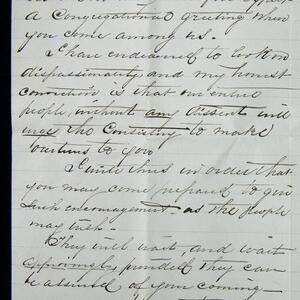 a Congregational greeting when
you come among us.
I have endeavored to look on
dispassionately and my honest
conviction is that our entire
people, without any dissent will
urge the Consistry to make
overtures to you.
I write thus in order that
you may come prepared to give
such encouragement as the people
may wish.
They will wait, and wait
approvingly provided they can
be assured of your coming